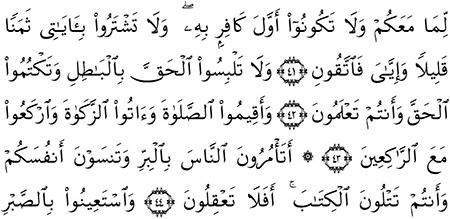 لِّمَا مَعَكُمْ وَلَا تَكُونُوٓا۟ أَوَّلَ كَافِرٍۭ بِهِۦ ۖ وَلَا تَشْتَرُوا۟ بِـَٔايَٰتِى ثَمَنًا
قَلِيلًا وَإِيَّٰىَ فَٱتَّقُونِ ﴿٤١﴾ وَلَا تَلْبِسُوا۟ ٱلْحَقَّ بِٱلْبَٰطِلِ وَتَكْتُمُوا۟
ٱلْحَقَّ وَأَنتُمْ تَعْلَمُونَ ﴿٤٢﴾ وَأَقِيمُوا۟ ٱلصَّلَوٰةَ وَءَاتُوا۟ ٱلزَّكَوٰةَ وَٱرْكَعُوا۟
مَعَ ٱلرَّٰكِعِينَ ﴿٤٣﴾ ۞ أَتَأْمُرُونَ ٱلنَّاسَ بِٱلْبِرِّ وَتَنسَوْنَ أَنفُسَكُمْ
وَأَنتُمْ تَتْلُونَ ٱلْكِتَٰبَ ۚ أَفَلَا تَعْقِلُونَ ﴿٤٤﴾ وَٱسْتَعِينُوا۟ بِٱلصَّبْرِ